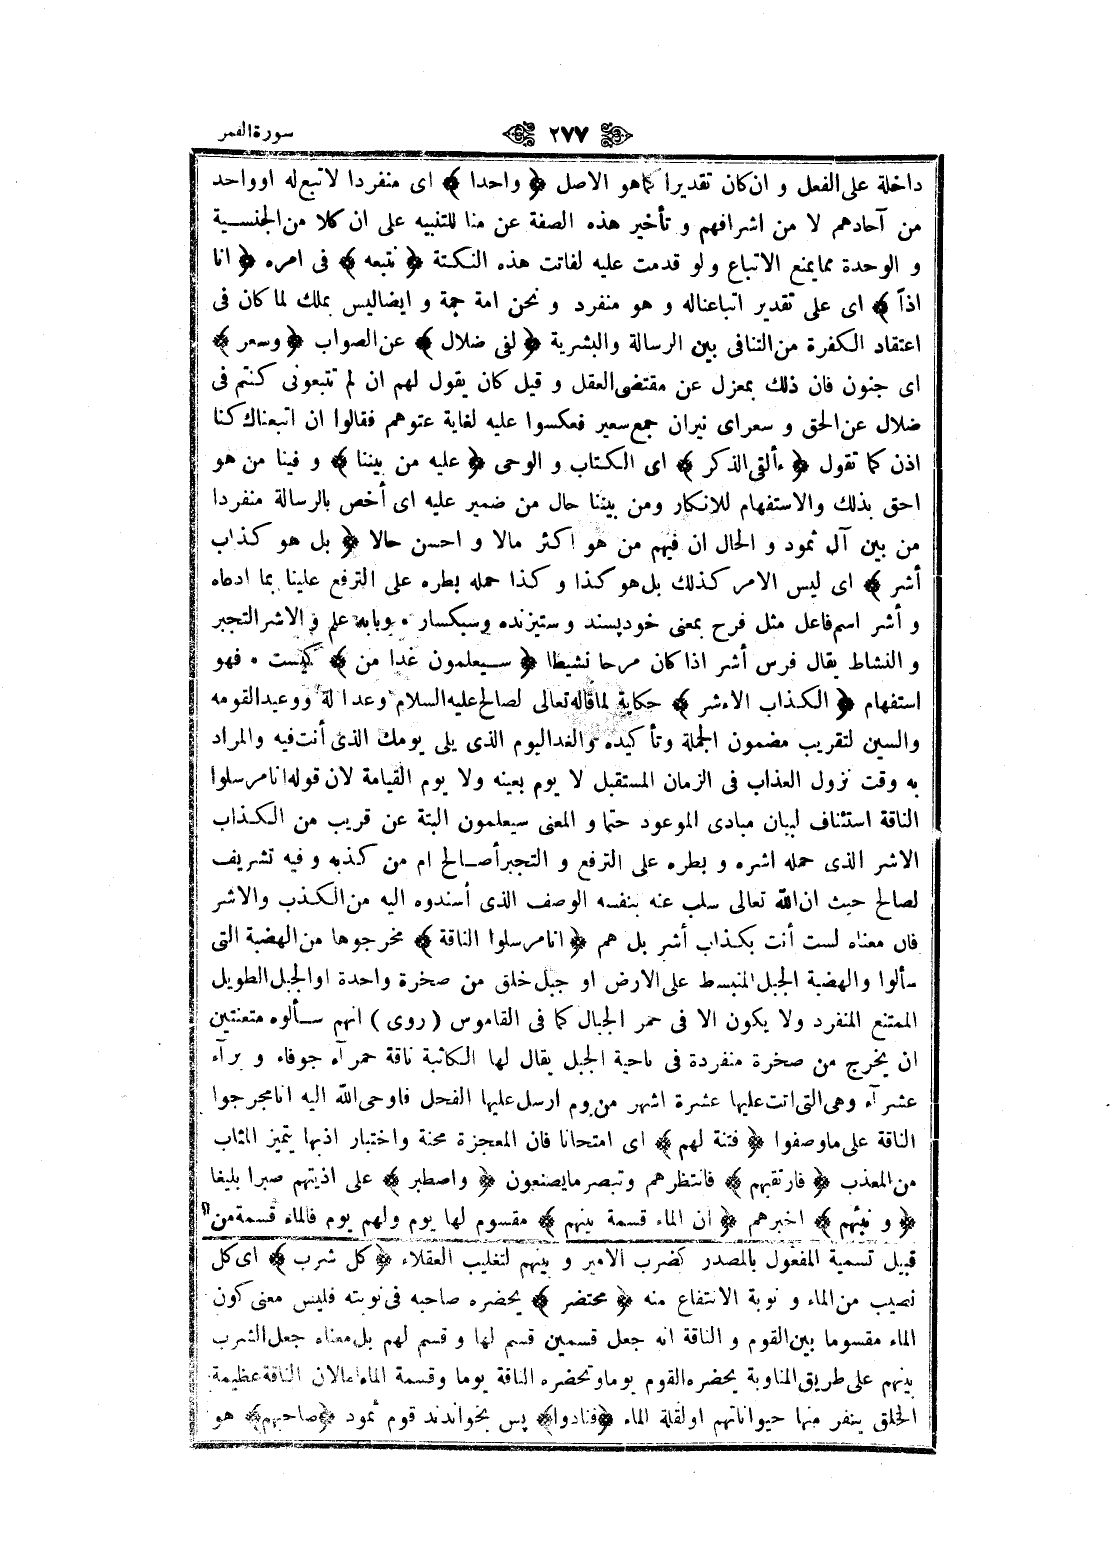 سورة القمر
﴿ ٢٧٧ ﴾
داخلة على الفعل و ان كان تقديرا كما هو الاصل ﴿ واحدا ﴾ اى منفردا لاتبع له اوواحد
من آحادهم لا من اشرافهم و تأخير هذه الصفة عن منا للتنبيه على ان كلا من الجنسية
و الوحدة ممايمنع الاتباع ولو قدمت عليه لفاتت هذه النكتة ﴿ نتبعه ﴾ فى امره ﴿ انا
اذاً ﴾ اى على تقدير اتباعناله و هو منفرد و نحن امة جمة و ايضاليس بملك لما كان فى
اعتقاد الكفرة من التنافى بين الرسالة والبشرية ﴿ لفى ضلال ﴾ عن الصواب ﴿ وسعر ﴾
اى جنون فان ذلك بمعزل عن مقتضى العقل و قيل كان يقول لهم ان لم تتبعونى كنتم فى
ضلال عن الحق و سعر اى نيران جمع سعير فعكسوا عليه لغاية عتوهم فقالوا ان اتبعناك كنا
اذن كما تقول ﴿ ءألقى الذكر ﴾ اى الكتاب و الوحى ﴿ عليه من بيننا ﴾ و فينا من هو
احق بذلك والاستفهام للانكار ومن بيننا حال من ضمير عليه اى أخص بالرسالة منفردا
من بين آل ثمود و الحال ان فيهم من هو اكثر مالا و احسن حالا ﴿ بل هو كذاب
أشر ﴾ اى ليس الامر كذلك بل هو كذا و كذا حمله بطره على الترفع علينا بما ادعاه
و أشر اسم فاعل مثل فرح بمعنى خودپسند وستيزنده وسبكسار ٠ وبابه علم و الاشر التجبر
و النشاط يقال فرس أشر اذا كان مرحا نشيطا ﴿ سيعلمون غدا من ﴾ كيست ٠ فهو
استفهام ﴿ الكذاب الاءشر ﴾ حكاية لماقاله تعالى لصالح عليه السلام وعدا لة ووعيدالقومه
والسين لتقريب مضمون الجملة وتأكيده والغداليوم الذى يلى يومك الذى أنت فيه والمراد
به وقت نزول العذاب فى الزمان المستقبل لا يوم بعينه ولا يوم القيامة لان قوله انامرسلوا
الناقة استئناف لبيان مبادى الموعود حتما و المعنى سيعلمون البتة عن قريب من الكذاب
الاشر الذى حمله اشره و بطره على الترفع و التجبر أصالح ام من كذبه و فيه تشريف
لصالح حيث ان الله تعالى سلب عنه بنفسه الوصف الذى أسندوه اليه من الكذب والاشر
فان معناه لست أنت بكذاب أشر بل هم ﴿ انامرسلوا الناقة ﴾ مخرجوها من الهضبة التى
سألوا والهضبة الجبل المنبسط على الارض او جبل خلق من صخرة واحدة او الجبل الطويل
الممتنع المنفرد ولا يكون الا فى حمر الجبال كما فى القاموس ( روى ) انهم سألوه متعنتين
ان يخرج من صخرة منفردة فى ناحية الجبل يقال لها الكاثبة ناقة حمرآء جوفاء و برآء
عشرآء وهى التى اتت عليها عشرة اشهر من يوم ارسل عليها الفحل فاوحى الله اليه انامخرجوا
الناقة على ماوصفوا ﴿ فتنة لهم ﴾ اى امتحانا فان المعجزة محنة واختبار اذبها يتميز المثاب
من المعذب ﴿ فارتقبهم ﴾ فانتظرهم وتبصر مايصنعون ﴿ واصطبر ﴾ على اذيتهم صبرا بليغا
﴿ و نبئهم ﴾ اخبرهم ﴿ ان الماء قسمة بينهم ﴾ مقسوم لها يوم ولهم يوم فالماء قسمة من
قبيل تسمية المفعول بالمصدر كضرب الامير و بينهم لتغليب العقلاء ﴿ كل شرب ﴾ اى كل
نصيب من الماء و نوبة الانتفاع منه ﴿ محتضر ﴾ يحضره صاحبه فى نوبته فليس معنى كون
الماء مقسوما بين القوم و الناقة انه جعل قسمين قسم لها و قسم لهم بل معناه جعل الشرب
بينهم على طريق المناوبة يحضره القوم يوما وتحضره الناقة يوما وقسمة الماء امالان الناقة عظيمة
الخلق ينفر منها حيواناتهم اولقلة الماء ﴿ فنادوا ﴾ پس بخواندند قوم ثمود ﴿ صاحبهم ﴾ هو